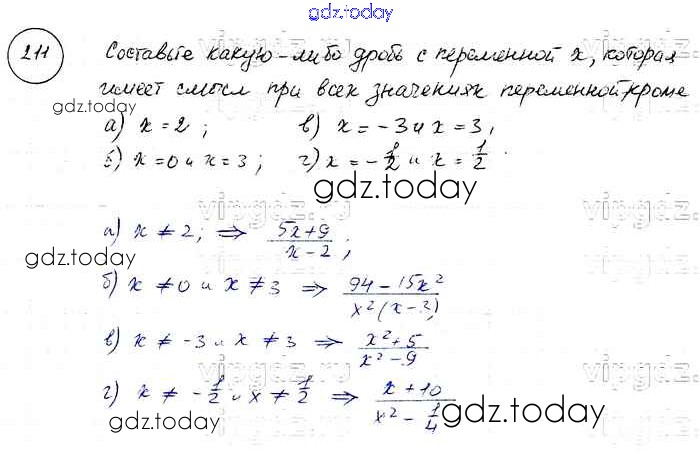 gdz.today
211
Составьте какую-либо дробь с переменной x, которая
имеет смысл при всех значениях переменной, кроме
gdz.today
а) x = 2; в) x = -3 и x = 3,
б) x = 0 и x = 3; г) x = -1/2 и x = 1/2.
gdz.today
vipgdz.ru
vipgdz.ru
а) x ≠ 2; ⇒ (5x+9)/(x-2);
gdz.today
б) x ≠ 0 и x ≠ 3 ⇒ (94-15x²)/(x²(x-3)
в) x ≠ -3 и x ≠ 3 ⇒ (x²+5)/(x²-9)
vipgdz.ru
vipgdz.ru
г) x ≠ -1/2 и x ≠ 1/2 ⇒ (x+10)/(x²-1/4)
gdz.today
gdz.today